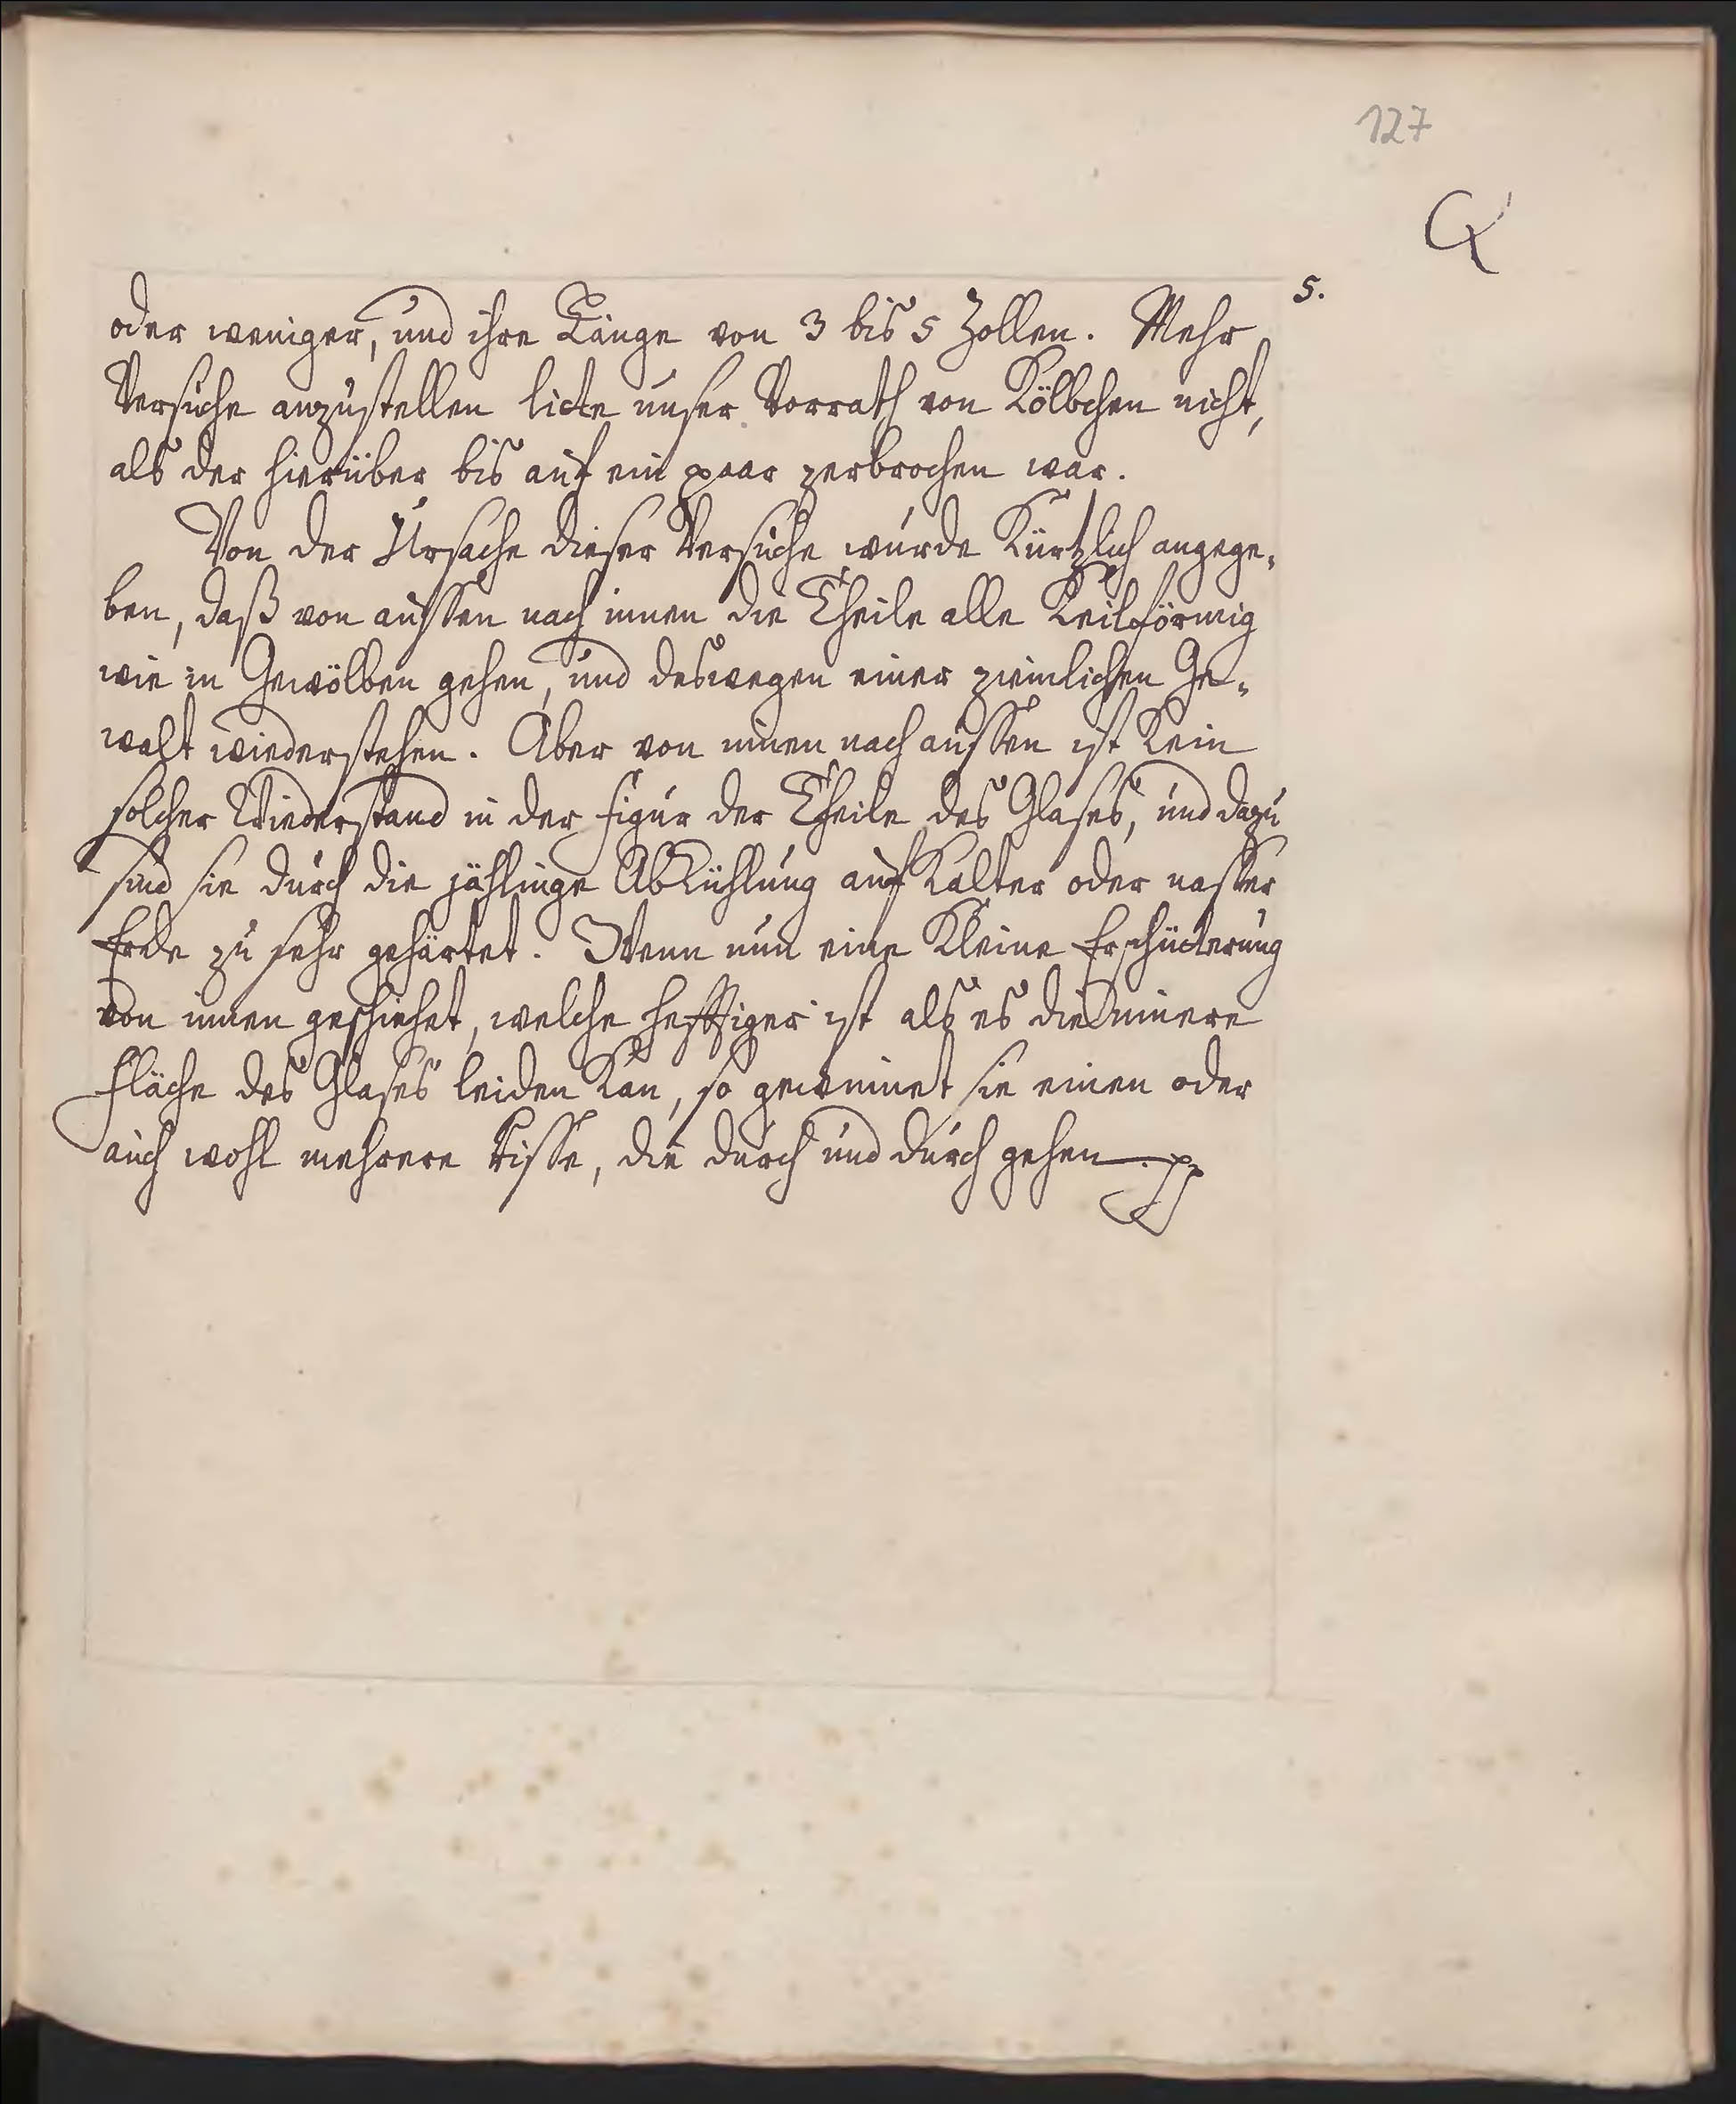 127
Q
5.
oder weniger, und ihre Länge von 3 bis 5 Zollen. Mehr
Versuche anzustellen litte unser Vorrath von Kölbchen nicht,
als der hierüber bis auf ein paar zerbrochen war.
Von der Ursache dieser Versuche wurde Kürtzlich angege-
ben, daß von aussen nach innen die Theile alle Keilförmig
wie in Gewölben gehen, und deswegen einer zimlichen Ge-
walt wiederstehen. Aber von innen nach aussen ist Kein
solcher Wiederstand in der Figur der Theile des Glases, und dazu
sind sie durch die jählinge AbKühlung auf Kalter oder nasser
Erde zu sehr gehärtet. Wenn nun eine Kleine Erschütterung
von innen geschiehet, welche hefftiger ist als es die innere
Fläche des Glases leiden Kan, so gewinnet sie einen oder
auch wohl mehrere Risse, die durch und durch gehen.